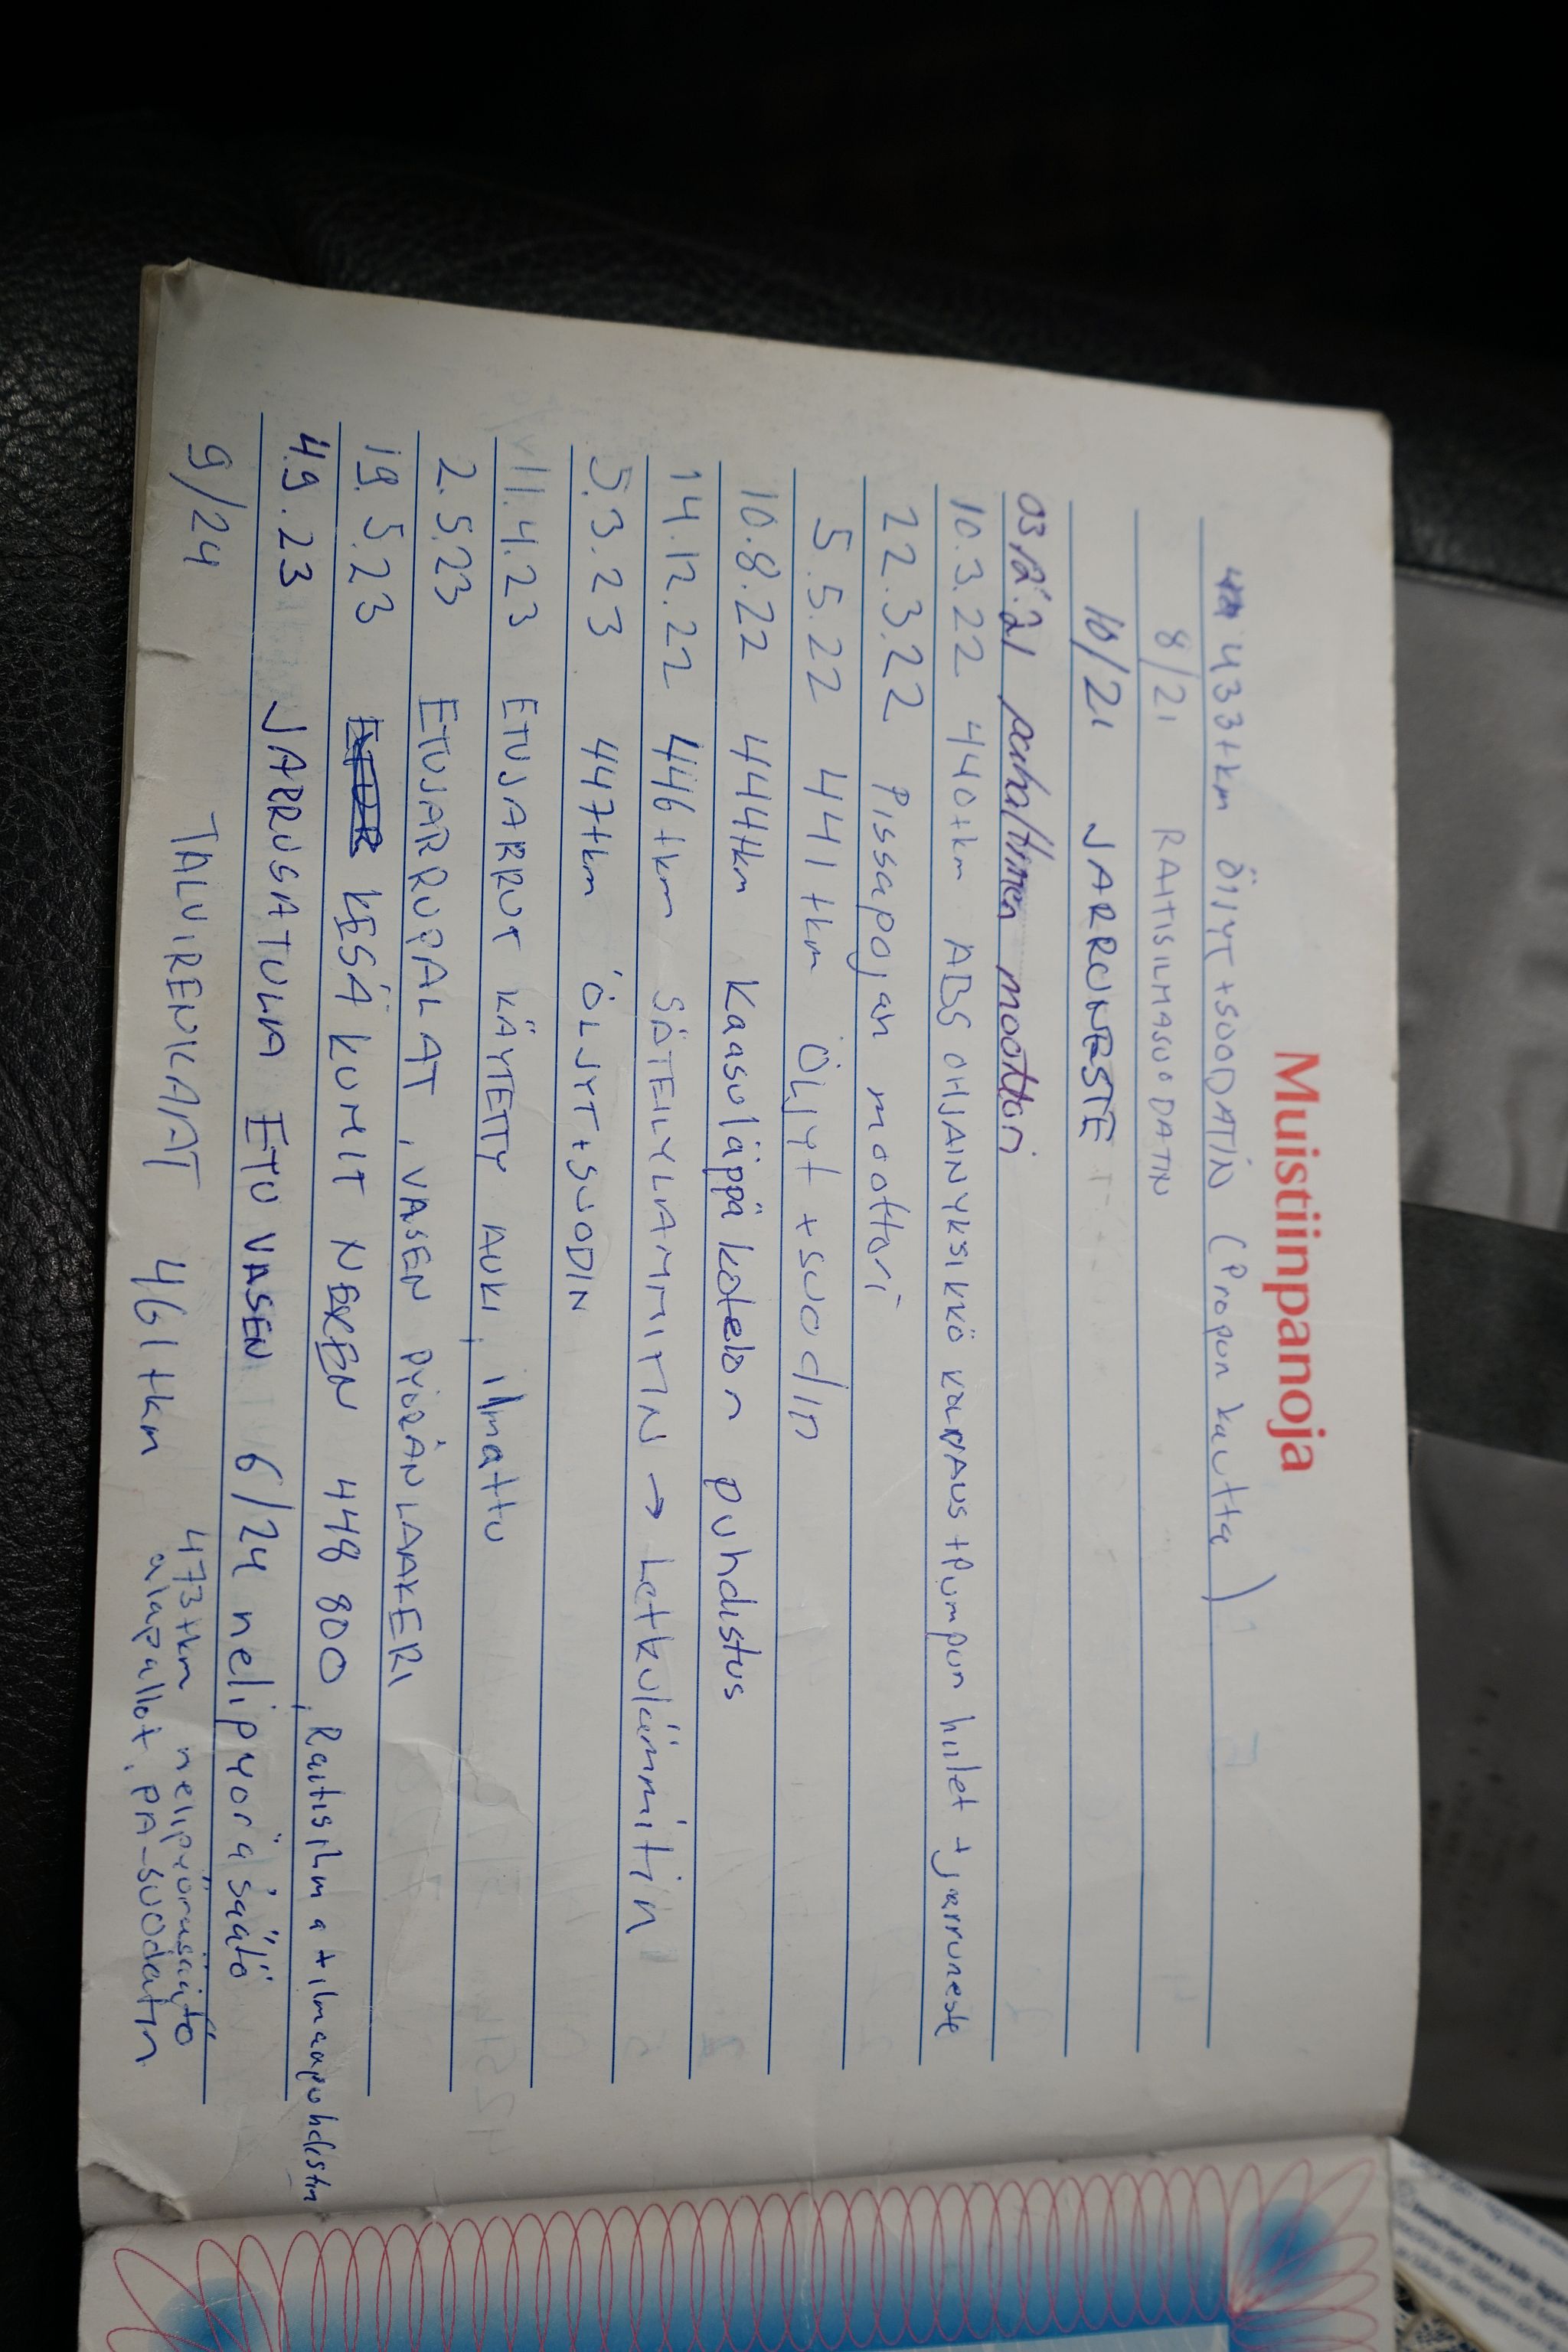 Muistiinpanoja
433tkm ÖLJYT+SOODATIN (Propun kautta)
8/21 RAITISILMASUODATIN
10/21 JARRUNESTE
03.12.21 puhaltimen moottori
10.3.22 440tkm ABS OHJAINYKSIKKÖ KORPAUS + Pumpun hiilet + jarruneste
22.3.22 Pissapojan moottori
5.5.22 441tkm Öljyt + suodin
10.8.22 444tkm Kaasuläppäkotelon puhdistus
14.12.22 446tkm SÄTEILYLÄMMITIN → Letkulämmitin
5.3.23 447tkm ÖLJYT+SUODIN
11.4.23 ETUJARRUT KÄYTETTY AUKI, ilmattu
2.5.23 ETUJARRUPALAT, VASEN PYÖRÄNLAAKERI
19.5.23 KESÄKUMIT NEXEN 448 800, Raitisilma + ilmanpuhdistin
4.9.23 JARRUSATULA ETU VASEN 6/24 nelipyöräsäätö
9/24 TALVIRENKAAT 461tkm 473tkm nelipyöräsäätö
alapallot, PA-suodatin